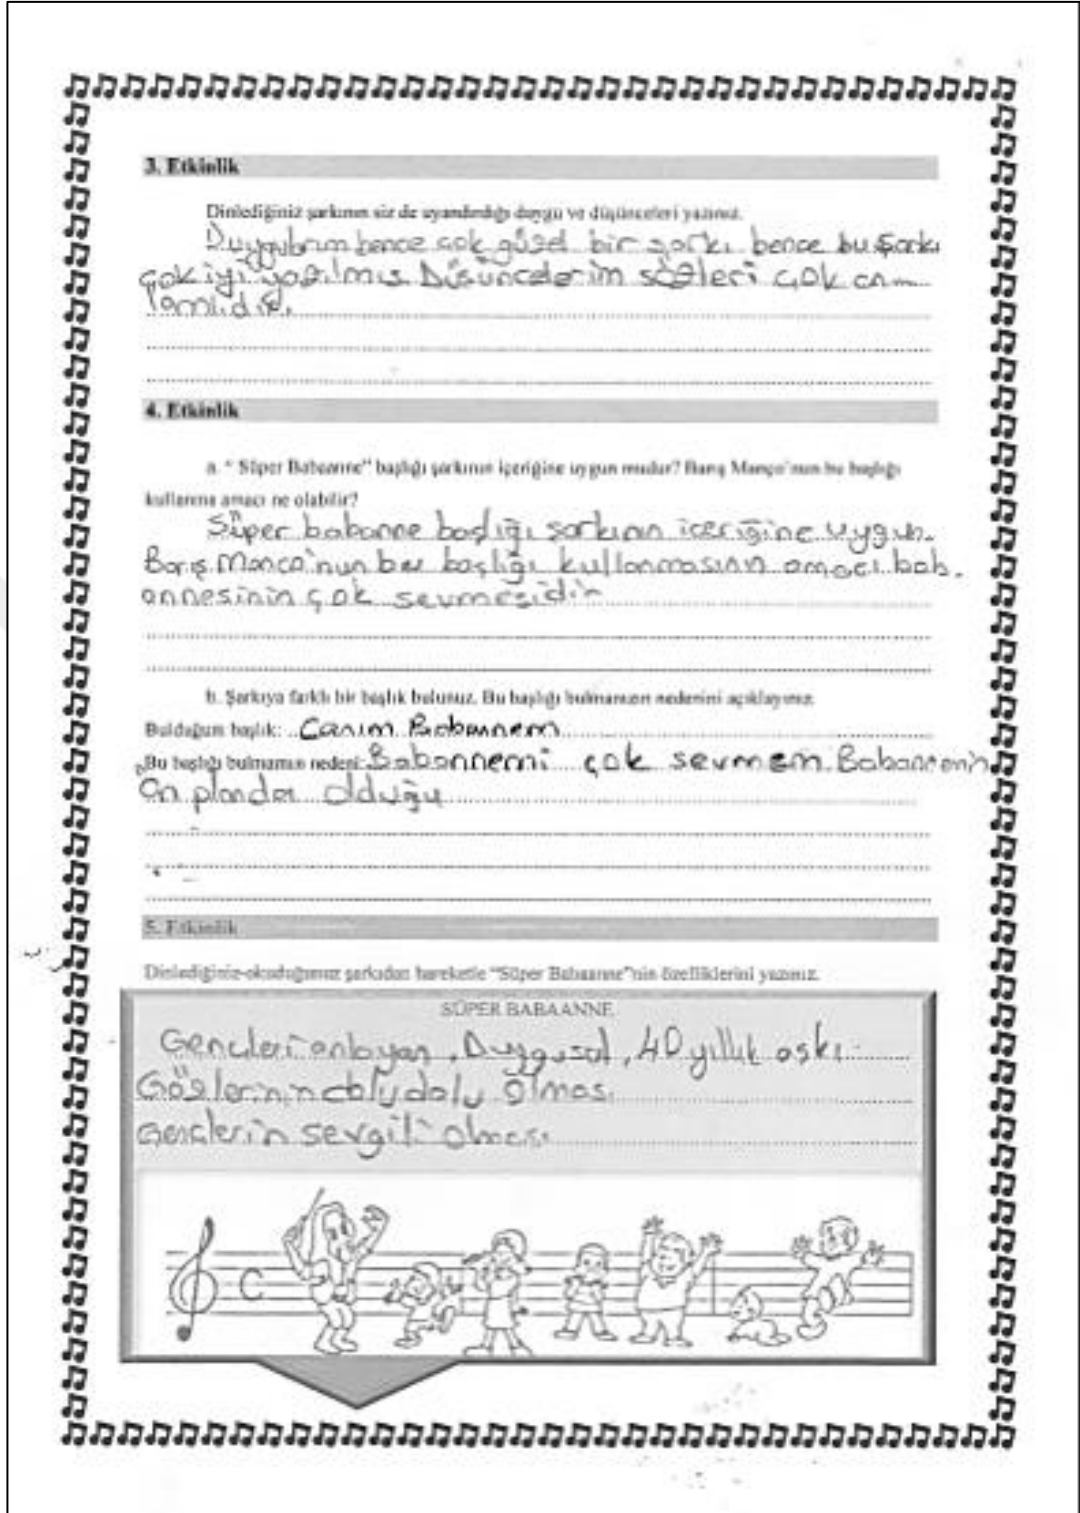 3. Etkinlik
Dinlediğiniz şarkının siz de uyandırdığı duygu ve düşünceleri yazınız.
Duygularım bence çok güzel bir şarkı bence bu şarkı
çok iyi yazılmış Düşüncelerim sözleri çok an
lamlıdır.
4. Etkinlik
a. “ Süper Babaanne” başlığı şarkının içeriğine uygun mudur? Barış Manço’nun bu başlığı
kullanma amacı ne olabilir?
Süper babanne başlığı şarkının içeriğine uygun.
Barış Manço'nun bu başlığı kullanmasının amacı bab.
annesinin çok sevmesidir
b. Şarkıya farklı bir başlık bulunuz. Bu başlığı bulmanızın nedenini açıklayınız.
Bulduğum başlık: Canım Babannem
Bu başlığı bulmamın nedeni: Babannemi çok sevmem. Babannemin
ön planda olduğu
5. Etkinlik
Dinlediğiniz-okuduğunuz şarkıdan hareketle “Süper Babaanne”nin özelliklerini yazınız.
SÜPER BABAANNE
Gençleri anlayan, Duygusal, 40 yıllık aşkı
Gözlerinin dolu dolu olması
Gençlerin sevgili olması